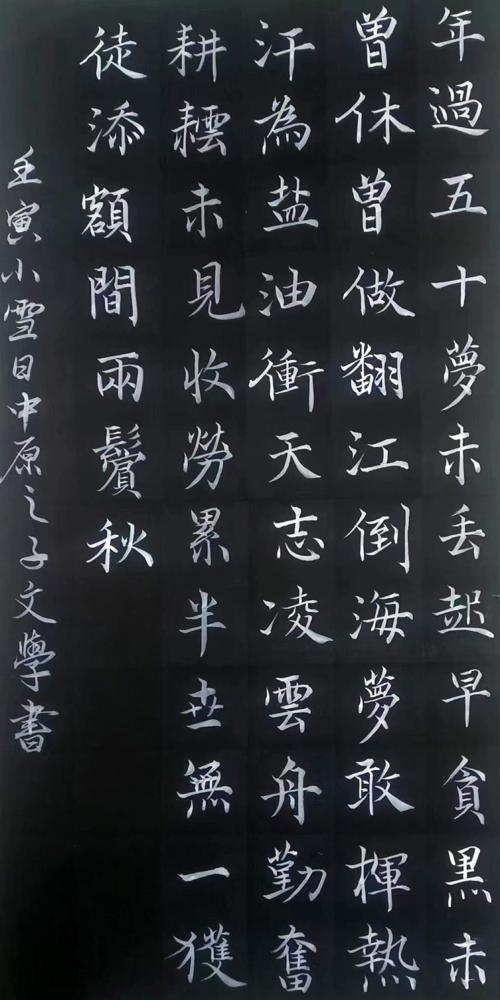 年過五十夢未丢起早貪黑未
曾休曾做翻江倒海夢敢揮熱
汗為盐油衝天志凌雲舟勤奮
耕耘未見收勞累半世無一獲
徒添額間兩鬢秋
壬寅小雪日中原之子文學書